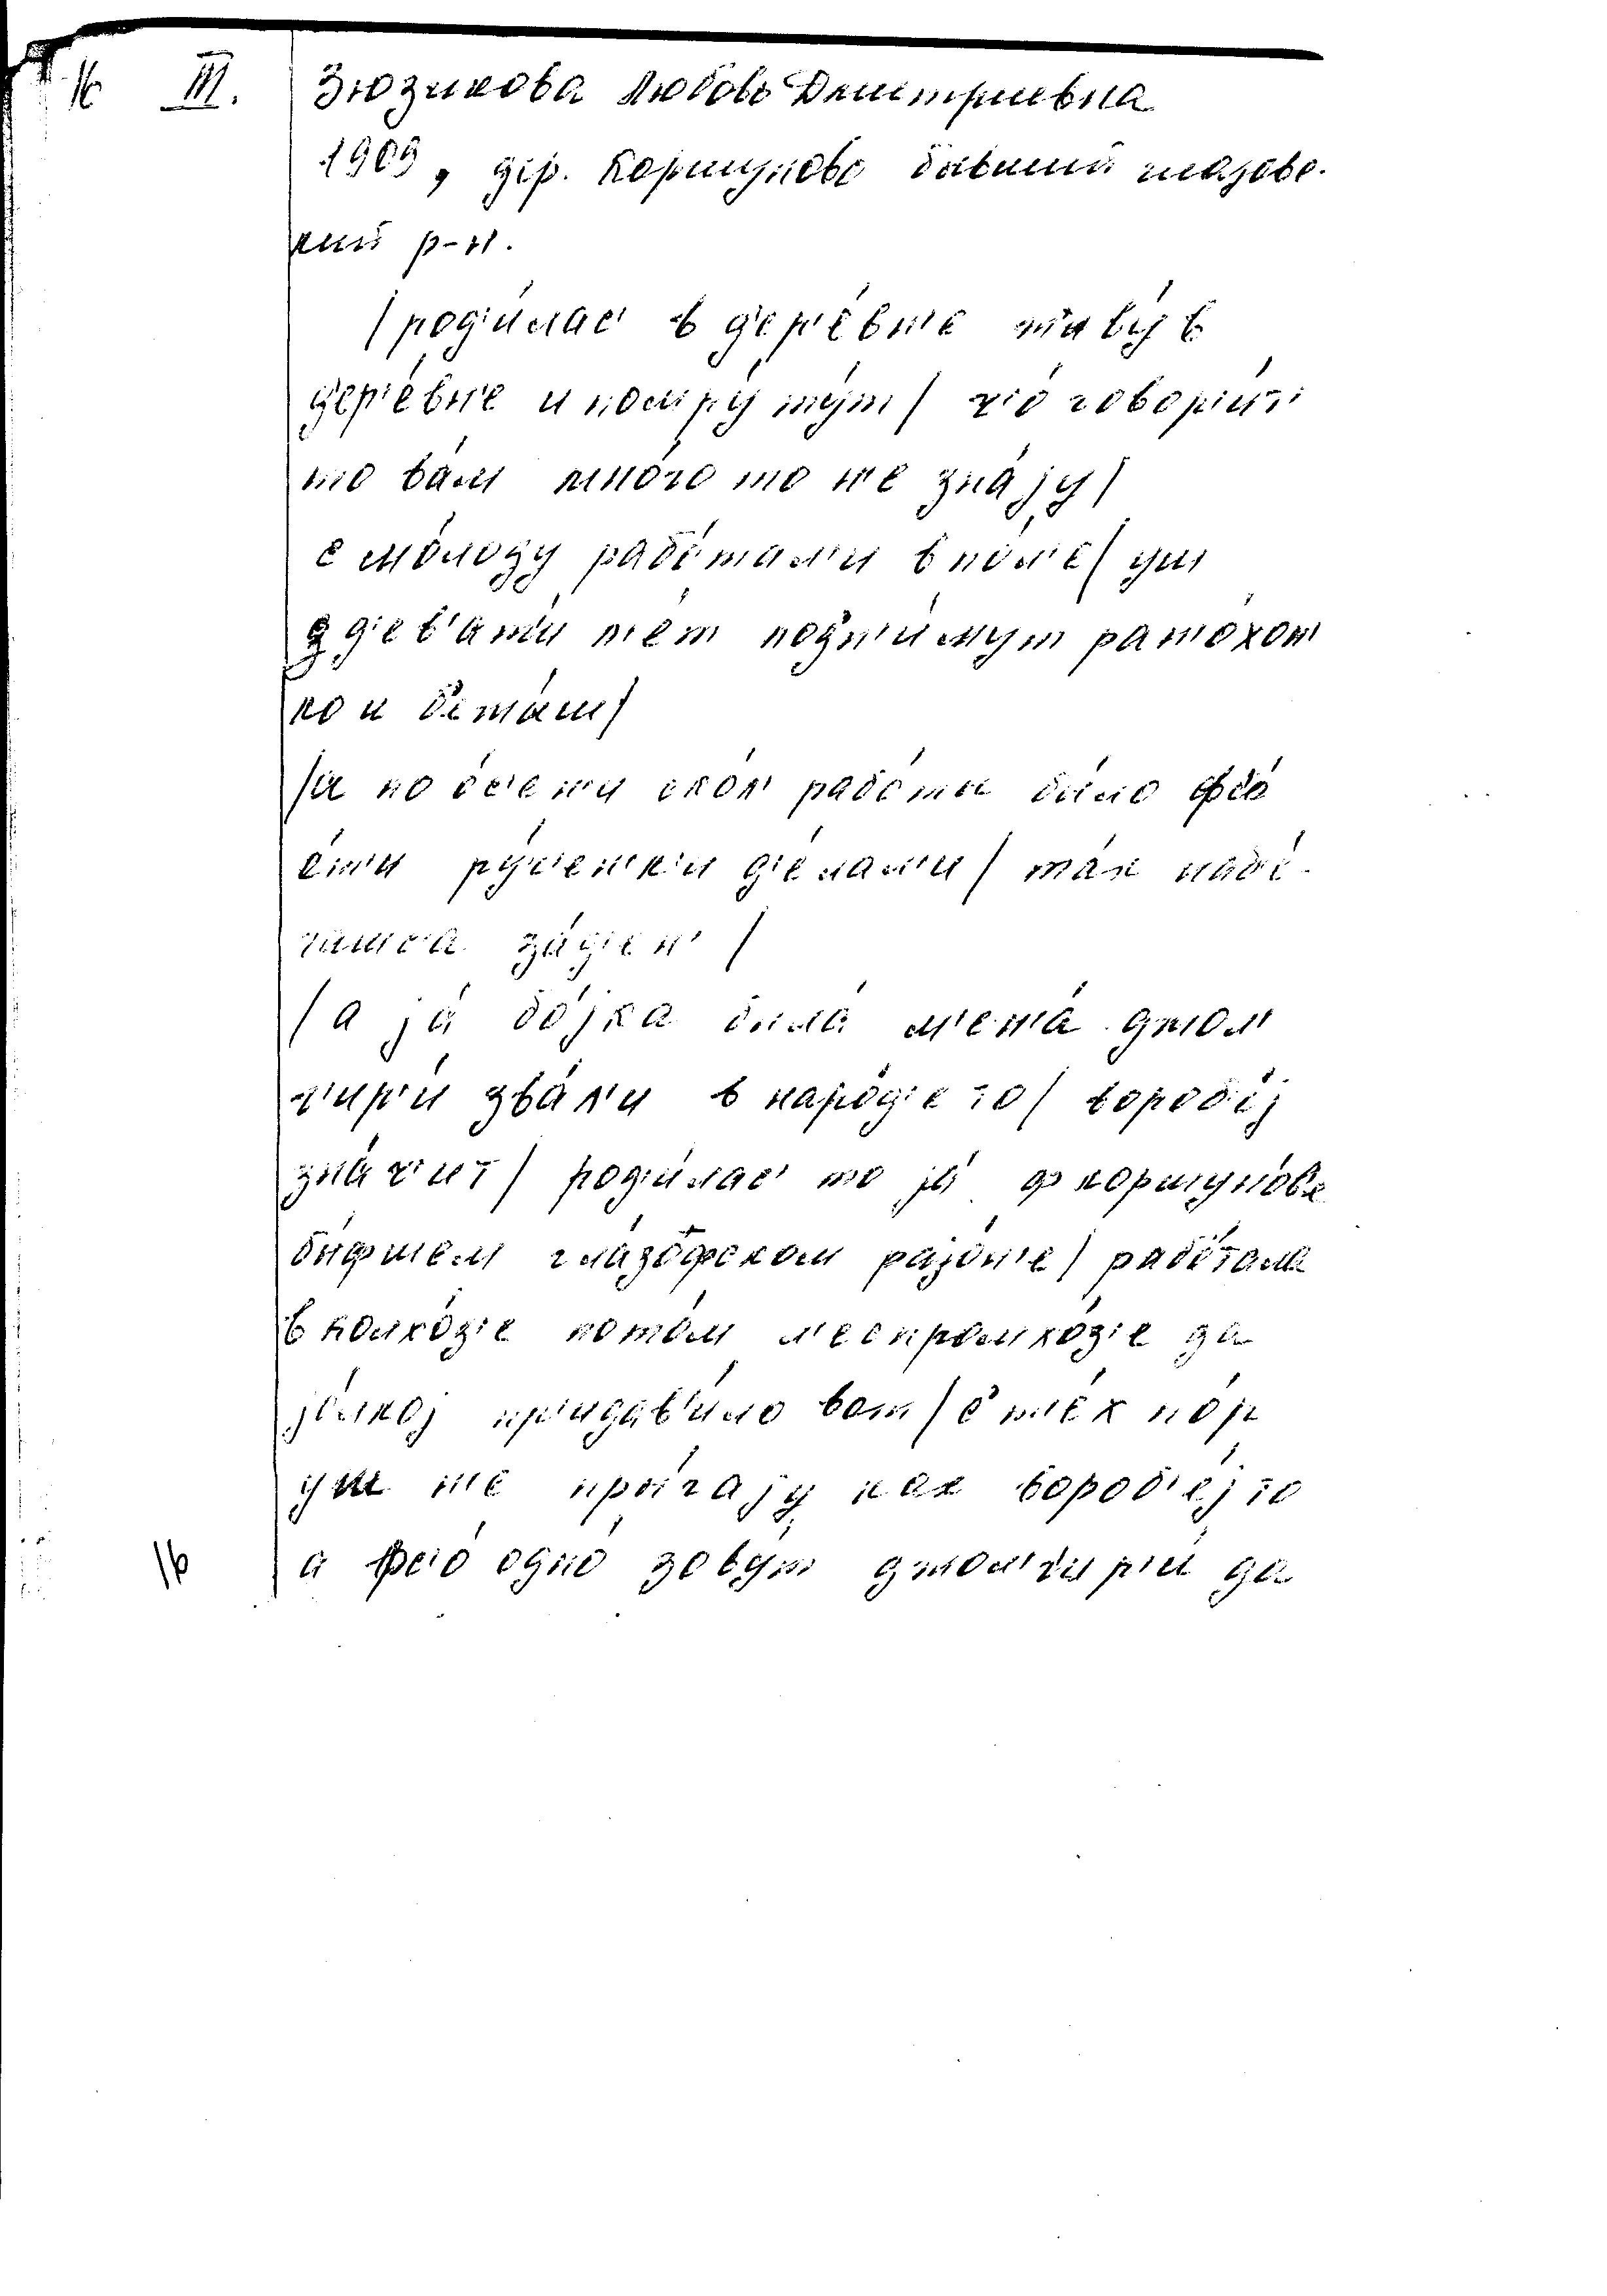 16 III. Зюзикова Любовь Дмитриевна
1909, дер. Коршуново бывший глазовс-
кий р-н.
/род'и́лас' в д'ер'е́вн'е живу́ в
д'ер'е́вн'е и помру́ ту́т/ ч'о́ говор'и́т'
то ва́м мно́го то н'е зна́jу/
с мо́лоду рабо́тал'и в по́л'е/ уш
з д'ев'ати́ л'е́т подн'и́мут
ко и
/а по о́с'ен'и ско́л' рабо́ты бы́ло фс'о́
е́т'и ру́с'ен'к'и д'е́лал'и/ та́к набе́-
гаш'с'а за́д'ен'/
/а jа́ бо́jка была́ м'ен'а́ дтол'
г'ир'и́ зва́л'и в наро́д'е то/ вороб'е́j
зна́ч'ит/ род'и́лас' то jа́ ф коршуно́в'е
бы́фшем гла́зофском раjо́н'е/ рабо́тала
в колхо́з'е пото́м л'еспромхо́з'е да
jо́лкоj придав'и́ло вот/ с т'е́х по́р
уш н'е пры́гаjу как вороб'е́j то
а фс'о́ одно́ зову́т дтол'г'ир'и́ да
16